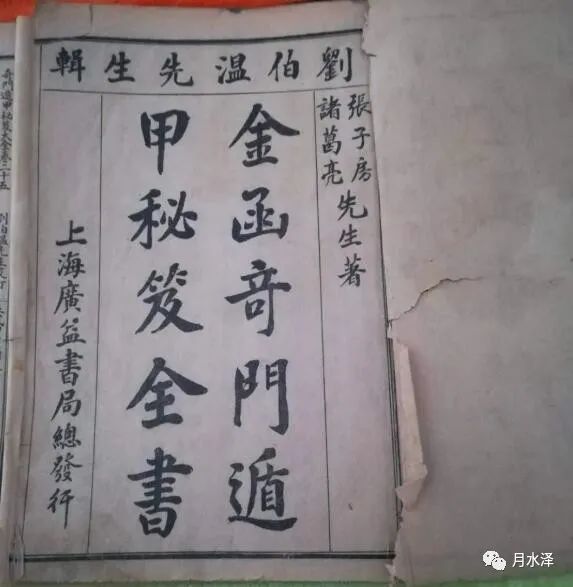 劉伯温先生輯
張子房
諸葛亮
先生著
金函奇門遁
甲秘笈全書
上海廣益書局總發行
月水泽